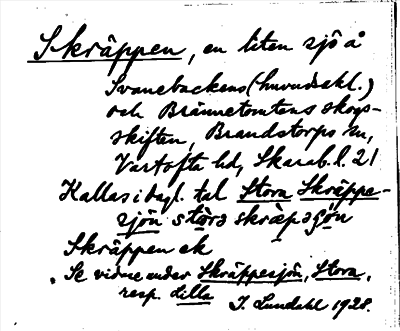 Skräppen, en liten sjö å
Svanebackens (huvudsakl.)
och Brännetomtens skogs-
skiften, Brandstorps sn,
Vartofta hd, Skarab. l. 21
Kallas i dagl. tal Stora Skräppe-
sjön
Skräppen ek
Se vidare under Skräppesjön, Stora,
resp. Lilla
I. Lundahl 1928.